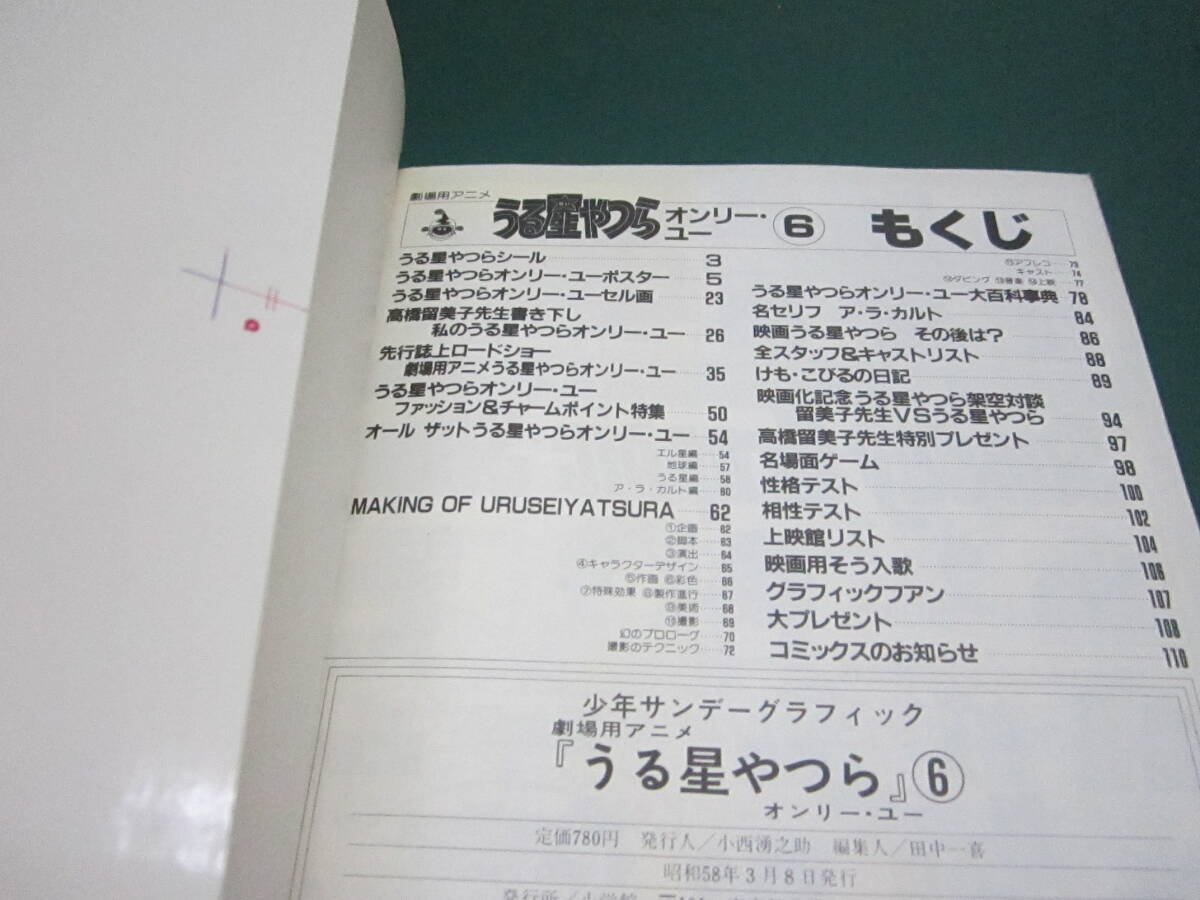 劇場用アニメ
うる星やつら オンリー・ユー ⑥ もくじ
うる星やつらシール 3
うる星やつらオンリー・ユーポスター 5
うる星やつらオンリー・ユーセル画 23
高橋留美子先生書き下し
私のうる星やつらオンリー・ユー 26
先行誌上ロードショー
劇場用アニメうる星やつらオンリー・ユー 35
うる星やつらオンリー・ユー
ファッション&チャームポイント特集 50
オール ザットうる星やつらオンリー・ユー 54
エル星編 54
地球編 57
うる星編 58
ア・ラ・カルト編 60
MAKING OF URUSEIYATSURA 62
①企画 62
②脚本 63
③演出 64
④キャラクターデザイン 65
⑤作画 ⑥彩色 66
⑦特殊効果 ⑧製作進行 67
⑨美術 68
⑩撮影 69
幻のプロローグ 70
撮影のテクニック 72
⑪アフレコ 73
キャスト 74
⑫ダビング ⑬音楽 ⑭上映 77
うる星やつらオンリー・ユー大百科事典 78
名セリフ ア・ラ・カルト 84
映画うる星やつら その後は? 86
全スタッフ&キャストリスト 88
けも・こびるの日記 89
映画化記念うる星やつら架空対談
留美子先生VSうる星やつら 94
高橋留美子先生特別プレゼント 97
名場面ゲーム 98
性格テスト 100
相性テスト 102
上映館リスト 104
映画用そう入歌 106
グラフィックフアン 107
大プレゼント 108
コミックスのお知らせ 110
少年サンデーグラフィック
劇場用アニメ
『うる星やつら』⑥
オンリー・ユー
定価780円 発行人/小西湧之助 編集人/田中一喜
昭和58年3月8日発行
発行所/小学館